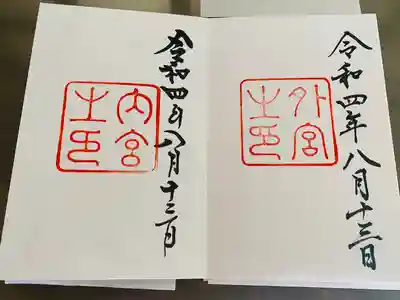 令和四年八月十三日
外宮
之印
令和四年八月十三日
内宮
之印